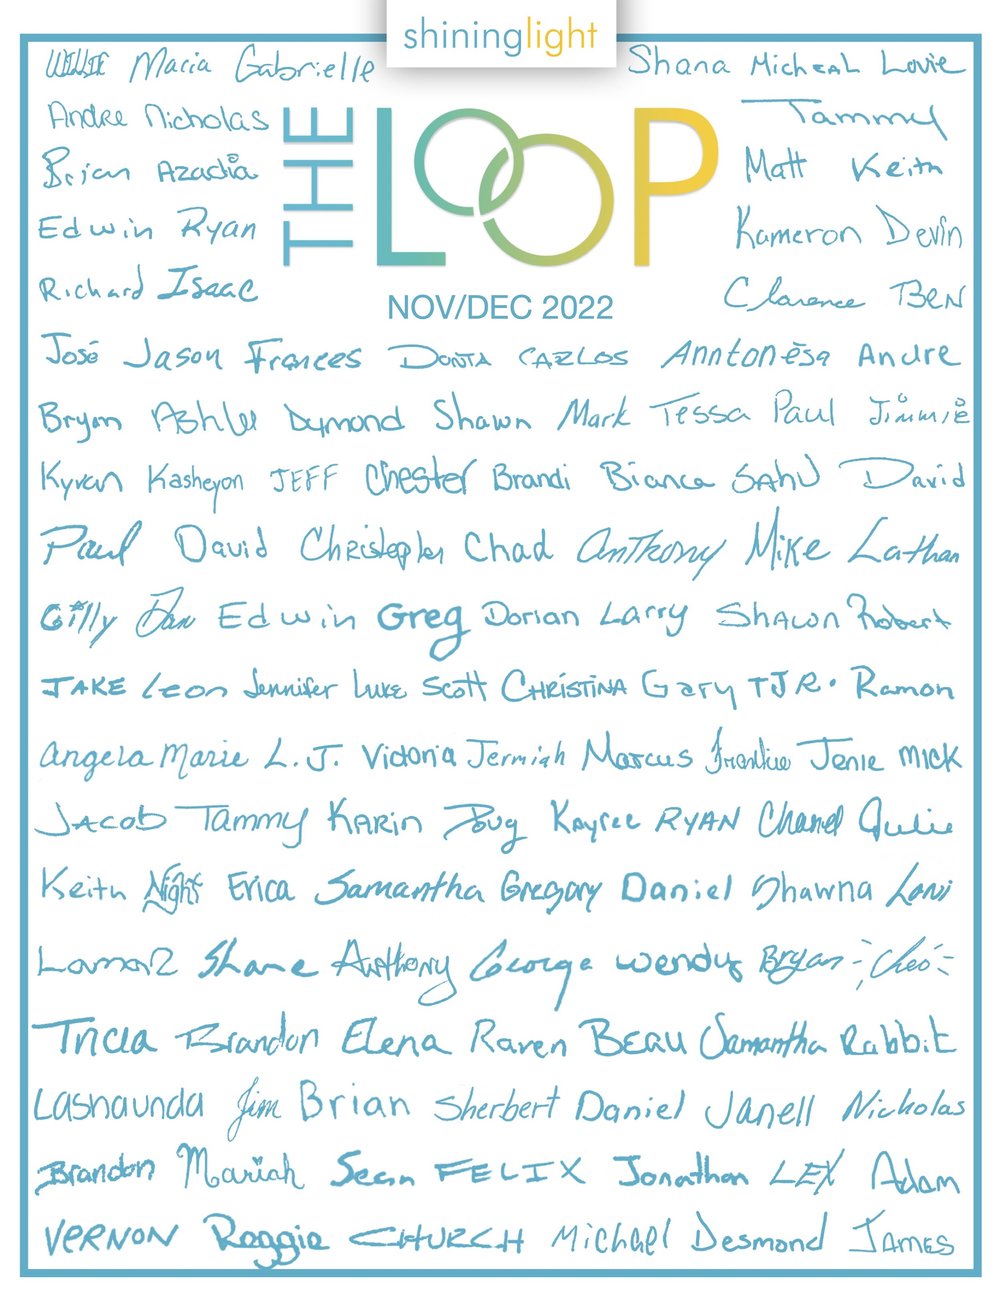 shininglight
WILLIE Maria Gabrielle Shana Micheal Lovie
Andre Nicholas Tammy
Brian Azadia Matt Keith
Edwin Ryan Kameron Devin
Richard Isaac Clarence BEN
THE LOOP
NOV/DEC 2022
José Jason Frances DONTA CARLOS Anntonēsa Andre
Bryan Ashlee Dymond Shawn Mark Tessa Paul Jimmie
Kyvan Kasheyon JEFF Chester Brandi Bianca SAHU David
Paul David Christopher Chad Anthony Mike Lathan
Gilly Dan Edwin Greg Dorian Larry Shawn Robert
JAKE Leon Jennifer Luke Scott CHRISTINA Gary TJR. Ramon
Angela Marie L.J. Victoria Jermiah Marcus Frankie Jenie MICK
JACOB Tammy KARIN Doug Kayree RYAN Chanel Julie
Keith Night Erica Samantha Gregory Daniel Shawna Lori
Lamar2 Shane Anthony George Wendy Bryan Cheo
Tricia Brandon Elena Raven BEAU Samantha Rabbit
Lashaunda Jim Brian Sherbert Daniel Janell Nicholas
Brandon Mariah Sean FELIX Jonathan LEX Adam
VERNON Reggie CHURCH Michael Desmond JAMES